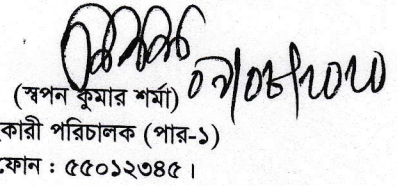 ০৭/০৮/২০২০
(স্বপন কুমার শর্মা)
কারী পরিচালক (পার-১)
ফোন : ৫৫০১২৩৪৫।